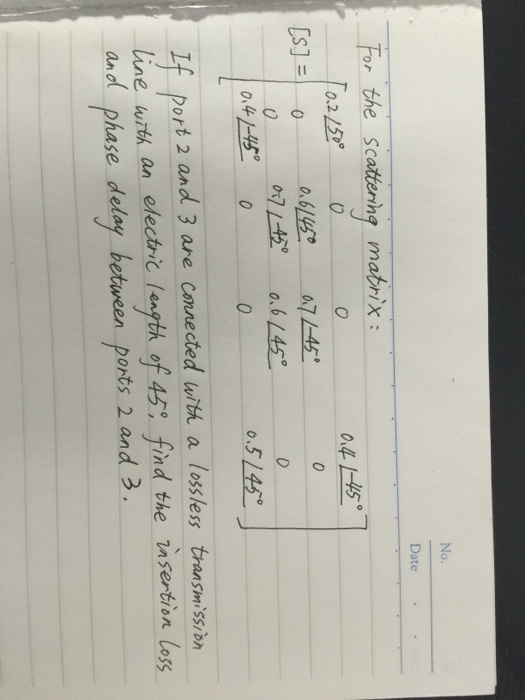 No.
Date
For the scattering matrix:
[S] =
0.2∠50° 0 0 0.4∠-45°
0 0.6∠45° 0.7∠-45° 0
0 0.7∠-45° 0.6∠45° 0
0.4∠-45° 0 0 0.5∠45°
If port 2 and 3 are connected with a lossless transmission
line with an electric length of 45°, find the insertion loss
and phase delay between ports 2 and 3.